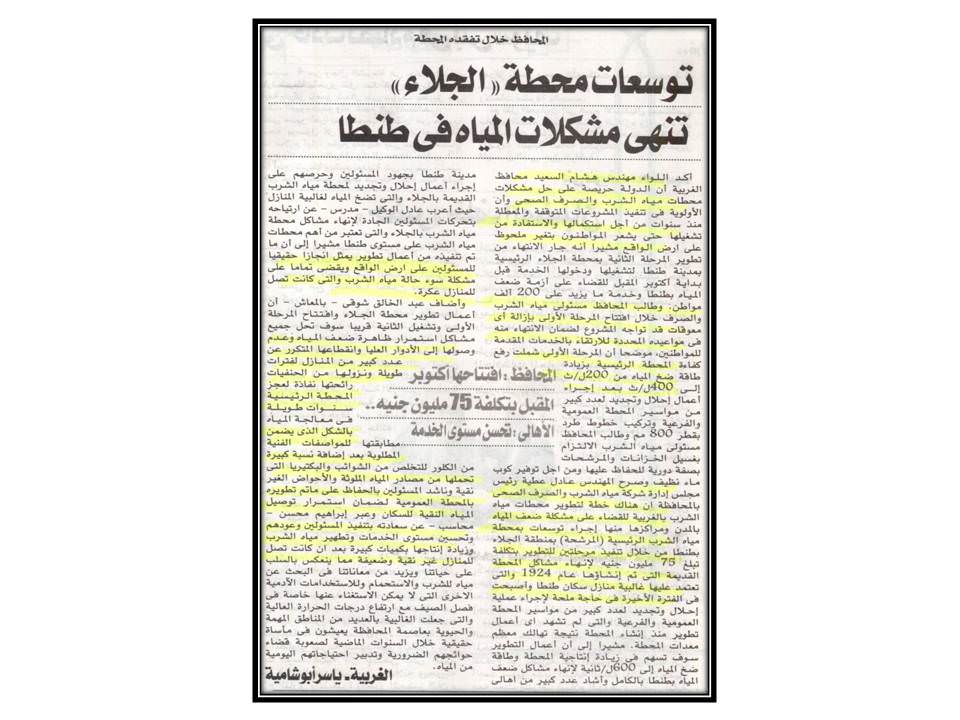 المحافظ خلال تفقده المحطة
توسعات محطة «الجلاء»
تنهى مشكلات المياه فى طنطا
أكد اللواء مهندس هشام السعيد محافظ
الغربية أن الدولة حريصة على حل مشكلات
محطات مياه الشرب والصرف الصحى وأن
الأولوية فى تنفيذ المشروعات المتوقفة والمعطلة
منذ سنوات من أجل استكمالها والاستفادة من
تشغيلها حتى يشعر المواطنون بتغير ملحوظ
على ارض الواقع مشيرا أنه جار الانتهاء من
تطوير المرحلة الثانية بمحطة الجلاء الرئيسية
بمدينة طنطا لتشغيلها ودخولها الخدمة قبل
بداية أكتوبر المقبل للقضاء على أزمة ضعف
المياه بطنطا وخدمة ما يزيد على 200 ألف
مواطن. وطالب المحافظ مسئولى مياه الشرب
والصرف خلال افتتاح المرحلة الأولى بإزالة أى
معوقات قد تواجه المشروع لضمان الانتهاء منه
فى مواعيده المحددة للارتقاء بالخدمات المقدمة
للمواطنين، موضحا أن المرحلة الأولى شملت رفع
كفاءة المحطة الرئيسية بزيادة
طاقة ضخ المياه من 200ل/ث
إلى 400ل/ث بعد إجراء
أعمال إحلال وتجديد لعدد كبير
من مواسير المحطة العمومية
والفرعية وتركيب خطوط طرد
بقطر 800 مم وطالب المحافظ
مسئولى مياه الشرب الالتزام
بغسيل الخزانات والمرشحات
بصفة دورية للحفاظ عليها ومن اجل توفير كوب
ماء نظيف وصرح المهندس عادل عطية رئيس
مجلس إدارة شركة مياه الشرب والصرف الصحى
بالمحافظة ان هناك خطة لتطوير محطات مياه
الشرب بالغربية للقضاء على مشكلة ضعف المياه
بالمدن ومراكزها منها إجراء توسعات بمحطة
مياه الشرب الرئيسية (المرشحة) بمنطقة الجلاء
بطنطا من خلال تنفيذ مرحلتين للتطوير بتكلفة
تبلغ 75 مليون جنيه لإنهاء مشاكل المحطة
القديمة التى تم إنشاؤها عام 1924 والتى
تعتمد عليها غالبية منازل سكان طنطا واصبحت
فى الفترة الأخيرة فى حاجة ملحة لإجراء عملية
إحلال وتجديد لعدد كبير من مواسير المحطة
العمومية والفرعية والتى لم تشهد اى أعمال
تطوير منذ إنشاء المحطة نتيجة تهالك معظم
معدات المحطة. مشيرا إلى أن أعمال التطوير
سوف تسهم فى زيادة إنتاجية المحطة وطاقة
ضخ المياه إلى 600ل/ثانية لإنهاء مشاكل ضعف
المياه بطنطا بالكامل وأشاد عدد كبير من اهالى
المحافظ : افتتاحها أكتوبر
المقبل بتكلفة 75 مليون جنيه..
الأهالى : تحسن مستوى الخدمة
مدينة طنطا بجهود المسئولين وحرصهم على
إجراء أعمال إحلال وتجديد لمحطة مياه الشرب
القديمة بالجلاء والتى تضخ المياه لغالبية المنازل
حيث أعرب عادل الوكيل - مدرس - عن ارتياحه
بتحركات المسئولين الجادة لإنهاء مشاكل محطة
مياه الشرب بالجلاء والتى تعتبر من أهم محطات
مياه الشرب على مستوى طنطا مشيرا إلى أن ما
تم تنفيذه من أعمال تطوير يمثل انجازا حقيقيا
للمسئولين على ارض الواقع ويقضى تماما على
مشكلة سوء حالة مياه الشرب والتى كانت تصل
للمنازل عكرة.
وأضاف عبد الخالق شوقى - بالمعاش - أن
أعمال تطوير محطة الجلاء وافتتاح المرحلة
الأولى وتشغيل الثانية قريبا سوف تحل جميع
مشاكل استمرار ظاهرة ضعف المياه وعدم
وصولها إلى الأدوار العليا وانقطاعها المتكرر عن
عدد كبير من المنازل لفترات
طويلة ونزولها من الحنفيات
رائحتها نفاذة لعجز
المحطة الرئيسية
سنوات طويلة
فى معالجة المياه
بالشكل الذى يضمن
مطابقتها للمواصفات الفنية
المطلوبة بعد إضافة نسبة كبيرة
من الكلور للتخلص من الشوائب والبكتيريا التى
تحملها من مصادر المياه الملوثة والأحواض الغير
نقية وناشد المسئولين بالحفاظ على ماتم تطويره
بالمحطة العمومية لضمان استمرار توصيل
المياه النقية للسكان وعبر إبراهيم محسن -
محاسب - عن سعادته بتنفيذ المسئولين وعودهم
وتحسين مستوى الخدمات وتطهير مياه الشرب
وزيادة إنتاجها بكميات كبيرة بعد ان كانت تصل
للمنازل غير نقية وضعيفة مما ينعكس بالسلب
على حياتنا ويزيد من معاناتنا فى البحث عن
مياه للشرب والاستحمام وللاستخدامات الآدمية
الاخرى التى لا يمكن الاستغناء عنها خاصة فى
فصل الصيف مع ارتفاع درجات الحرارة العالية
والتى جعلت الغالبية بالعديد من المناطق المهمة
والحيوية بعاصمة المحافظة يعيشون فى مأساة
حقيقية خلال السنوات الماضية لصعوبة قضاء
حوائجهم الضرورية وتدبير احتياجاتهم اليومية
من المياه.
الغربية - ياسر أبوشامية